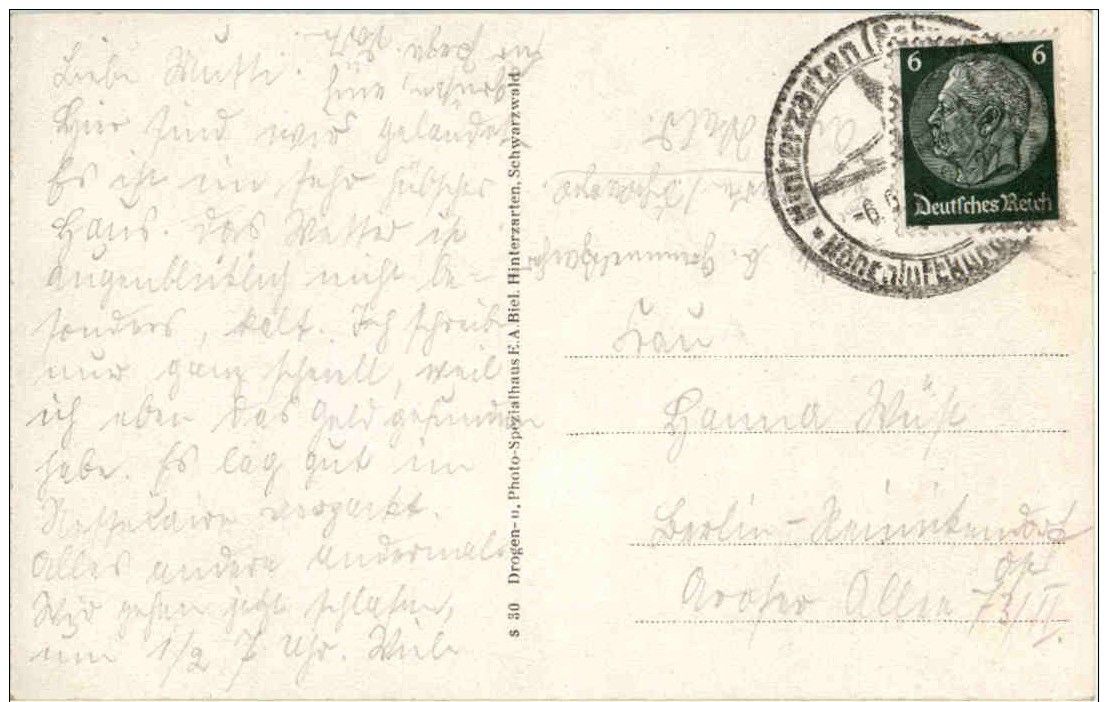 Liebe Mutti!
Hier sind wir gelandet.
Es ist ein sehr hübsches
Haus. Das Wetter ist
augenblicklich nicht be-
sonders, kalt. Ich schreibe
nur ganz schnell, weil
ich eben das Geld gefunden
habe. Es lag gut im
Necessaire verpackt.
Alles andere andermal.
Wir gehen jetzt schlafen,
um 1/2 7 Uhr. Viele
S 30 Drogen- u. Photo-Spezialhaus E. A. Biel. Hinterzarten, Schwarzwald
Hinterzarten
Höhenluftkurort
-6.6
6 6
Deutsches Reich
Frau
Hanna Wüst
Berlin-Reinickendorf
Ost
Aroser Allee 73/II.